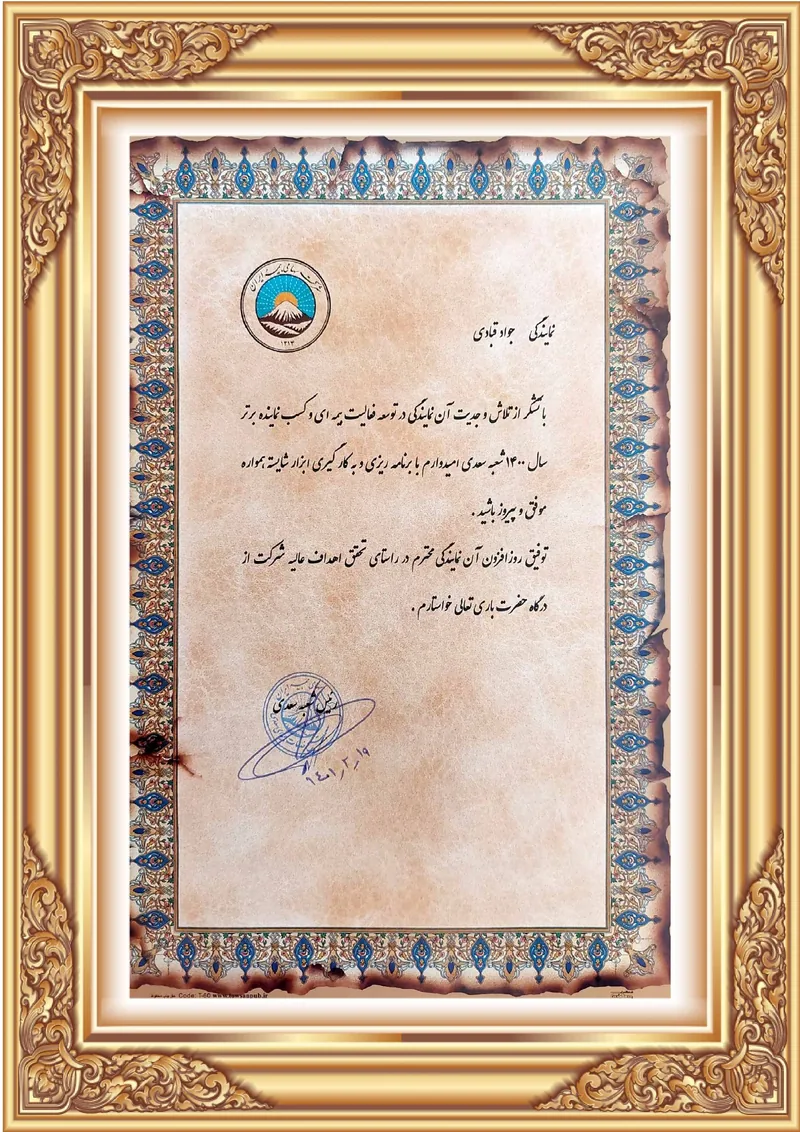 شرکت سهامی بیمه ایران
۱۳۱۴
نمایندگی جواد قبادی
با تشکر از تلاش و جدیت آن نمایندگی در توسعه فعالیت بیمه ای و کسب نماینده برتر
سال ۱۴۰۰ شعبه سعدی امیدوارم با برنامه ریزی و به کار گیری ابزار شایسته همواره
موفق و پیروز باشید .
توفیق روز افزون آن نمایندگی محترم در راستای تحقق اهداف عالیه شرکت از
درگاه حضرت باری تعالی خواستارم .
رئیس شعبه سعدی
۱۴۰۱٫۳٫۱۹
Code: T-60